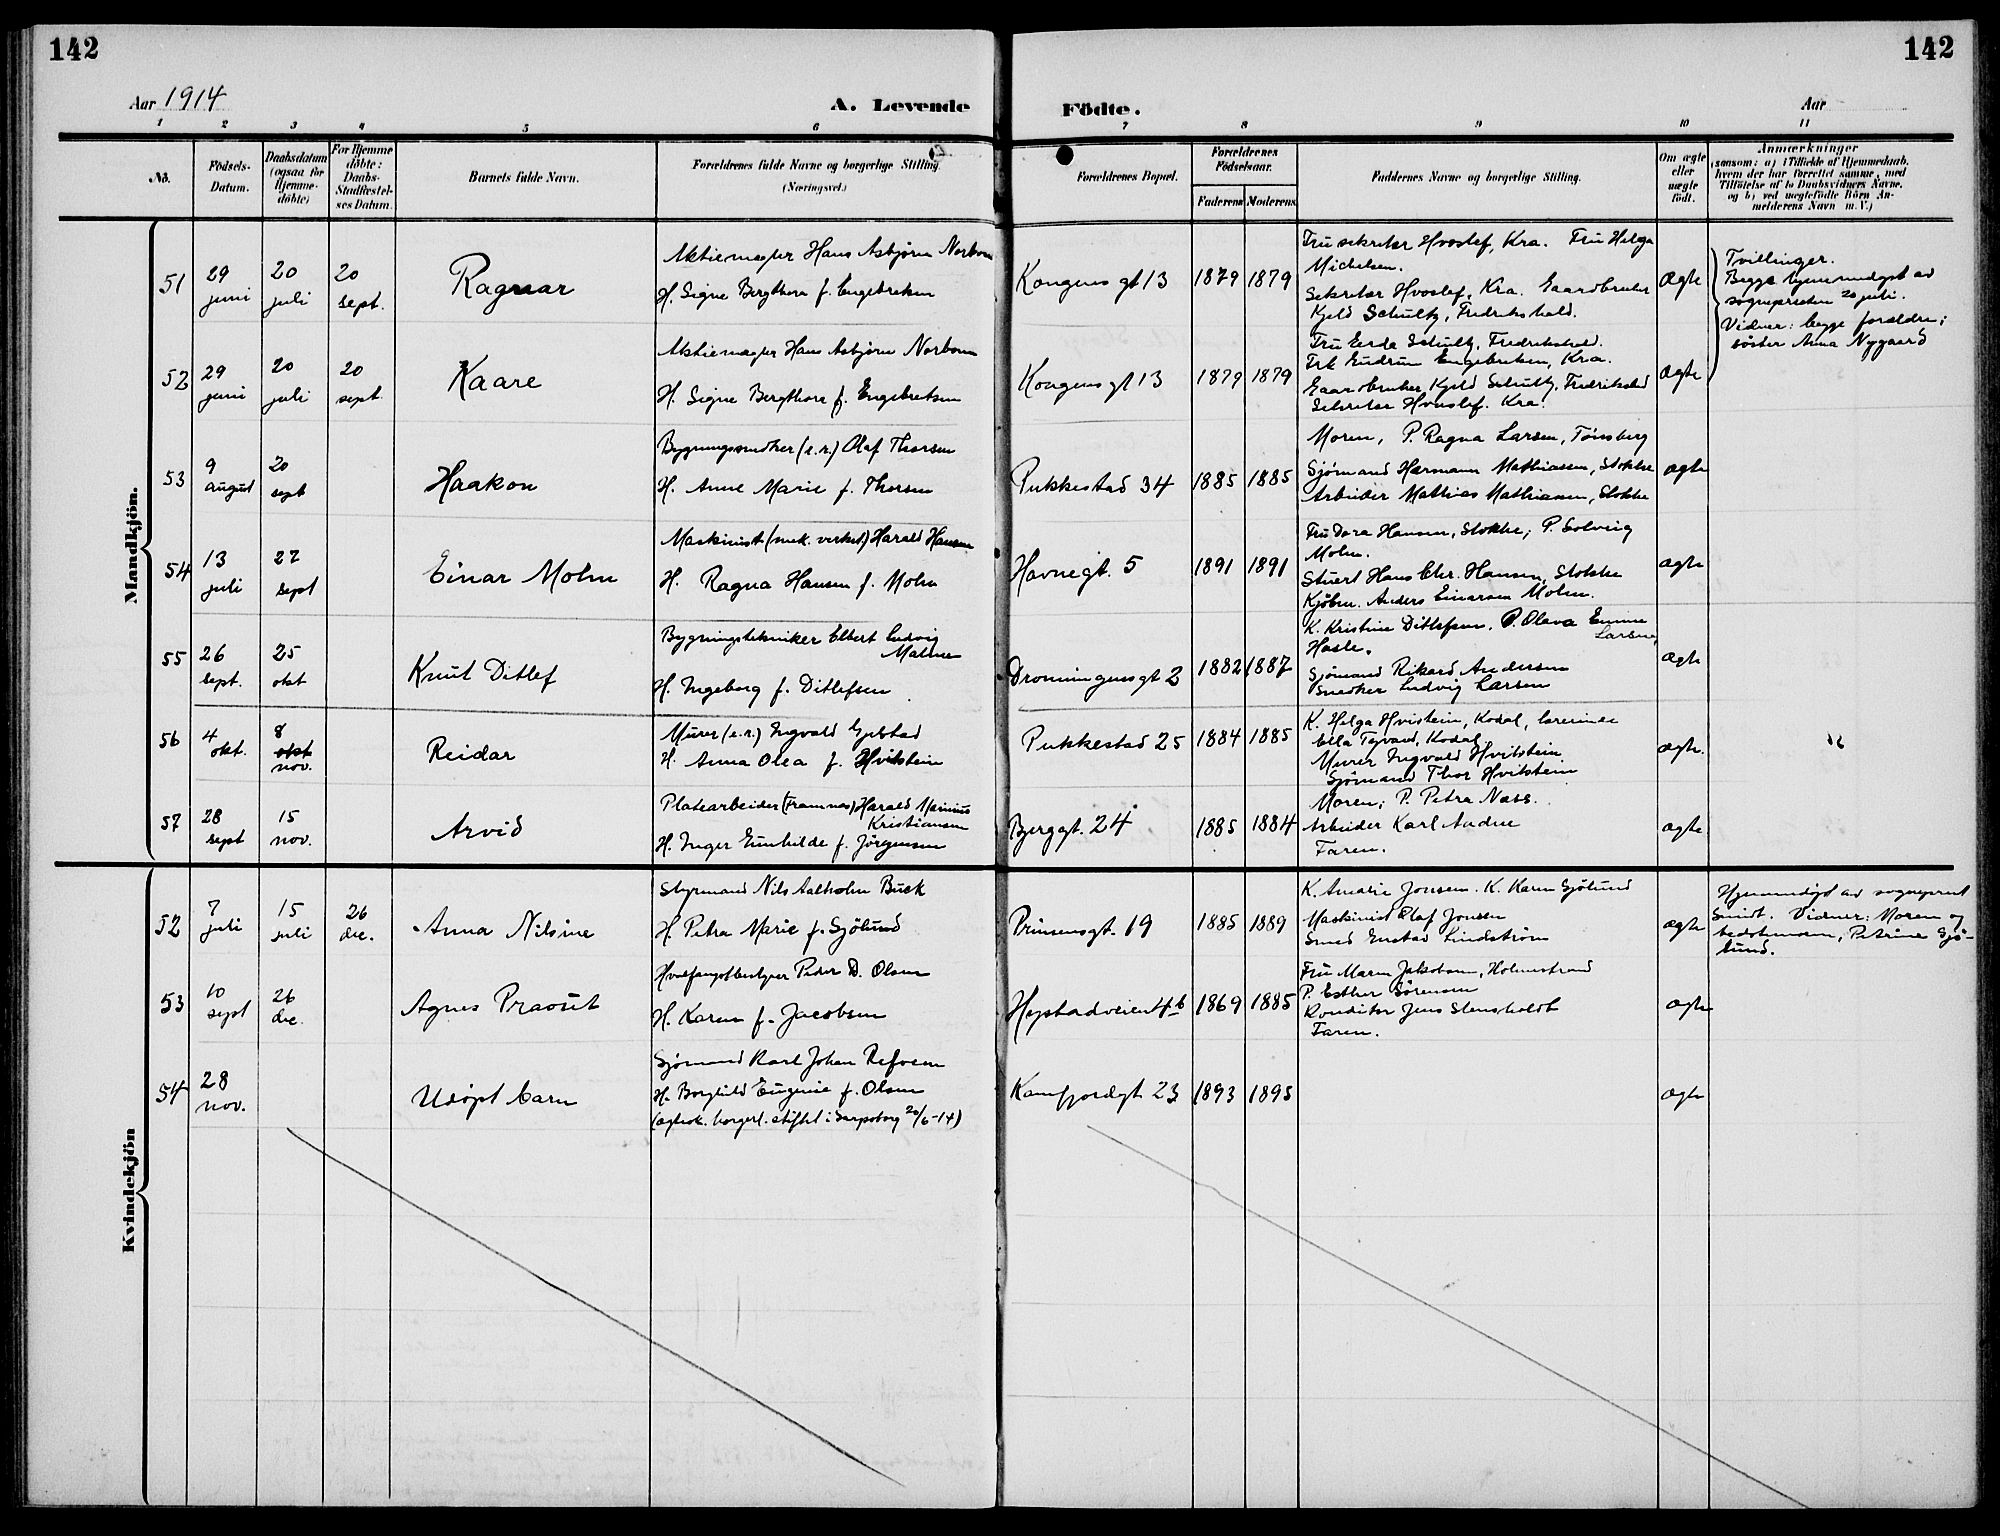 142
142
Aar 1914
A. Levende
Födte.
Aar
1 2 3 4 5 6 7 8 9 10 11
No.
Födsels-Datum.
Daabsdatum (ogsaa for Hjemme-döbte)
For Hjemme döbte: Daabs-Stadfæstelses Datum.
Barnets fulde Navn.
Forældrenes fulde Navne og borgerlige Stilling. (Næringsvei.)
Forældrenes Bopæl.
Forældrenes Födselsaar.
Faderens Moderens
Faddernes Navne og borgerlige Stilling.
Om ægte eller uægte födt.
Anmærkninger
(saasom: a) i Tilfælde af Hjemmedaab,
hvem der har forrettet samme, med
Tilföielse af to Daabsvidners Navne,
og b) ved uægtefödte Börn An-
melderens Navn m. V.)
Mandkjön.
51
29 juni
20 juli
20 sept.
Ragnar
Aktiemægler Hans Asbjørn Norbom
H. Signe Bergthora f. Engebretsen
Kongens gt 13
1879 1879
Fru sekretær Hvoslef, Kra. Fru Helga
Michelsen.
Sekretær Hvoslef, Kra. Gaardbruker
Kjeld Schultz, Fredrikshald.
ægte
Tvillinger.
Begge hjemmedøpt av
sognepresten 20 juli.
Vidner: begge forældre;
söster Anna Nygaard
52
29 juni
20 juli
20 sept.
Kaare
Aktiemægler Hans Asbjørn Norbom
H. Signe Bergthora f. Engebretsen
Kongens gt 13
1879 1879
Fru Gerda Schultz, Fredrikshald.
Frk Gudrun Engebretsen, Kra.
Gaardbruker Kjeld Schultz, Fredrikshald
Sekretær Hvoslef. Kra.
ægte
53
9 august
20 sept
Haakon
Bygningssnedker (e.r.) Olaf Thorsen
H. Anne Marie f. Thorsen
Pukkestad 34
1885 1885
Moren, P. Ragna Larsen, Tønsberg
Sjømand Hermann Mathiassen, Stokke
Arbeider Mathias Mathiassen, Stokke
ægte
54
13 juli
27 sept
Einar Molm
Maskinist (mek. verkst.) Harald Hansen
H. Ragna Hansen f. Molm
Havnegt. 5
1891 1891
Fru Dora Hansen, Stokke; P. Solveig
Molm.
Stuert Hans Chr. Hansen, Stokke
Kjøbm. Anders Einarsen Molm.
ægte
55
26 sept.
25 okt
Knut Ditlef
Bygningstekniker Elbert Ludvig
H. Ingeborg f. Ditlefsen
Dronningensgt 2
1882 1887
K. Kristine Ditlefsen. P. Olava Emma
Larsen,
Hasle.
Sjømand Rikard Andersen
Snedker Ludvig Larsen
ægte
56
4 okt.
8 okt nov.
Reidar
Murer (e.r.) Ingvald Gjelstad
H. Anna Olea f. Hvitstein
Pukkestad 25
1884 1885
K. Helga Hvistein, Kodal, lærerinne
Ella Tegvard, Kodal.
Murer Ingvald Hvitstein.
Sjömand Thor Hvitstein
ægte.
57
28 sept
15 nov.
Arvid
Platearbeider (Framnæs) Harald Marinius
Kristiansen
H. Inger Gunhilde f. Jörgensen
Bjerggt. 24
1885 1884
Moren; P. Petra Næss.
Arbeider Karl Andne
Faren.
ægte
Kvindekjön
52
7 juli
15 juli
26 de.
Anna Nilsine
Styrmand Nils Aalholm Buck
H. Petra Marie f. Sjölund
Prinsensgt. 19
1885 1889
K. Amalie Jonsen. K. Karen Sjölund
Maskinist Olaf Jonsen
Smed Gustav Lindström
ægte
Hjemmedöpt av sogneprest
Smidt. Vidner: Moren og
bedstemoren, Petrine Sjö-
lund.
53
10 sept
26 de.
Agnes Praout
Hvalfangstbestyrer Peder D. Olsen
H. Karen f. Jacobsen
Hystadveien 4b
1869 1885
Fru Maren Jakobsen, Holmestrand
P. Esther Sörensen
Konditor Jens Stensholdt
Faren.
ægte
54
28 nov.
Udöpt barn
Sjömand Karl Johan Refsem
H. Borghild Eugenie f. Olsen
(ægtesk. borgerl. stiftet i Sarpsborg 20/6-14)
Kamfjordgt. 23
1893 1895
ægte